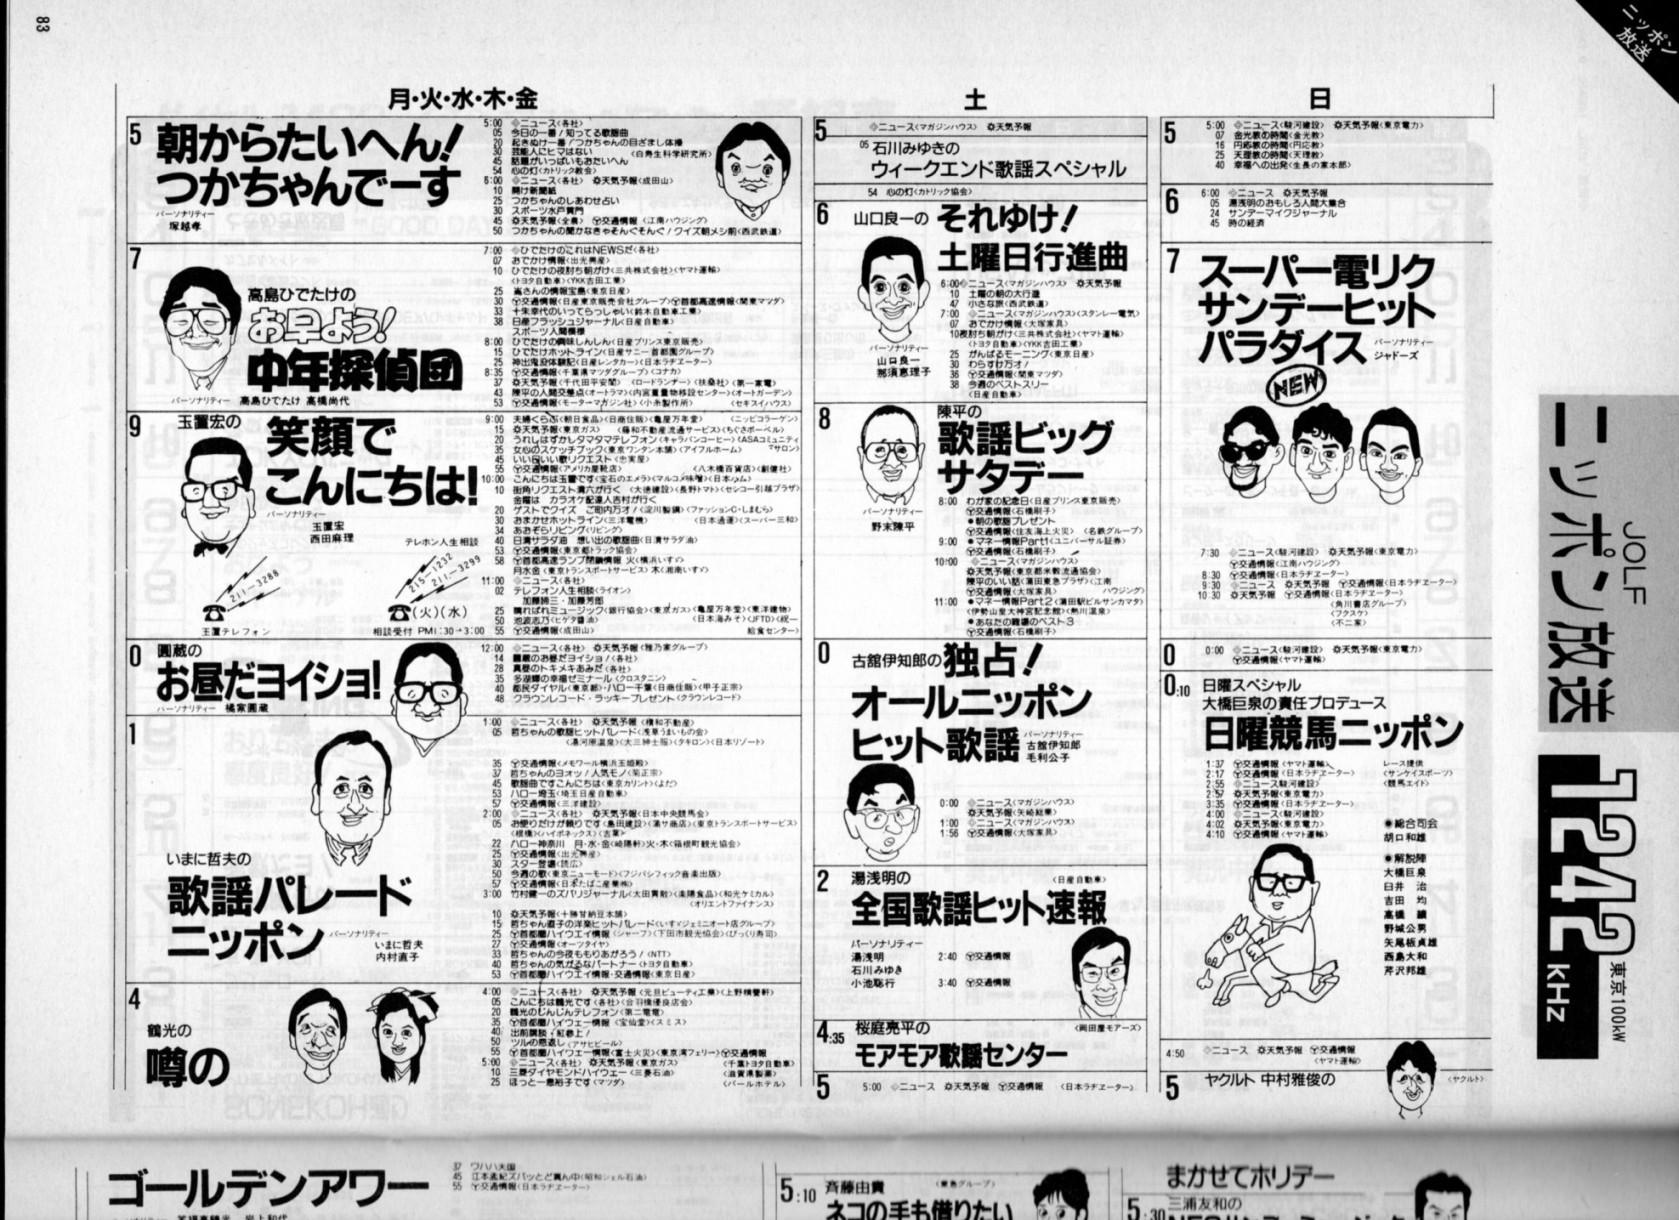 83
ニッポン
放送
月・火・水・木・金
土
日
5
朝からたいへん!
つかちゃんでーす
パーソナリティー
塚越孝
5:00 ◇ニュース〈各社〉
05 今日の一番!知ってる歌謡曲
20 起きぬけ一番!つかちゃんの目ざまし体操
30 芸能人にヒマはない 〈白寿生科学研究所〉
45 話題がいっぱいもおたいへん
54 心の灯〈カトリック教会〉
6:00 ◇ニュース〈各社〉 天気予報〈成田山〉
10 開け新聞紙
25 つかちゃんのしあわせ占い
30 スポーツ水戸黄門
45 天気予報〈全農〉 交通情報〈江南ハウジング〉
50 つかちゃんの聞かなきゃそんぐそんぐ!クイズ朝メシ前〈西武鉄道〉
7
高島ひでたけの
お早よう!
中年探偵団
パーソナリティー 高島ひでたけ 高橋尚代
7:00 ◇ひでたけのこれはNEWSだ〈各社〉
07 おでかけ情報〈出光興産〉
10 ひでたけの夜討ち朝がけ〈三共株式会社〉〈ヤマト運輸〉
〈トヨタ自動車〉〈YKK吉田工業〉
30 交通情報〈日産東京販売会社グループ〉首都高速情報〈関東マツダ〉
33 十朱幸代のいってらっしゃい〈鈴木自動車工業〉
38 日産フラッシュジャーナル〈日産自動車〉
スポーツ人間模様
8:00 ひでたけの興味しんしん〈日産プリンス東京販売〉
15 ひでたけホットライン〈日産サニー首都圏グループ〉
25 神出鬼没体験記〈日産レンタカー〉〈日本ラヂエーター〉
8:35 交通情報〈千葉県マツダグループ〉〈コナカ〉
37 天気予報〈千代田平安閣〉〈ロードランナー〉〈扶桑社〉〈第一家電〉
43 陳平の人間交差点〈オートラマ〉〈内宮重量物移設センター〉〈オートガーデン〉
53 交通情報〈モーターマガジン社〉〈小糸製作所〉 〈セキスイハウス〉
9
玉置宏の
笑顔で
こんにちは!
パーソナリティー
玉置宏
西田麻理
テレホン人生相談
211-3288
215-1232
211-3299
☎
☎(火)(水)
玉置テレフォン
相談受付 PM1:30→3:00
9:00 夫婦くらぶ〈朝日食品〉〈日商住販〉〈亀屋万年堂〉 〈ニッピコラーゲン〉
15 天気予報〈東京ガス〉 〈藤和不動産流通サービス〉〈ちぐさボーベル〉
20 うれしはずかしタマタマテレフォン〈キャラバンコーヒー〉〈ASAコミュニティサロン〉
35 女心のスケッチブック〈東京ワンタン本舗〉〈アイフルホーム〉
45 いい日いい歌リクエスト〈忠実屋〉
55 交通情報〈アメリカ屋靴店〉 〈八木橋百貨店〉〈創健社〉
10:00 こんにちは玉置です〈宝石のエメラ〉〈マルコメ味噌〉〈日本ハム〉
10 街角リクエスト溝六が行く〈大徳建設〉〈長野トマト〉〈センコー引越プラザ〉
金曜は カラオケ配達人吉村が行く
20 ゲストでクイズ ご町内万才!〈淀川製鋼〉〈ファッションC・しまむら〉
30 おまかせホットライン〈三洋電機〉 〈日本通運〉〈スーパー三和〉
34 あおぞらリビング〈リビング〉
40 日清サラダ油 想い出の歌謡曲〈日清サラダ油〉
53 交通情報〈東京都トラック協会〉
58 首都高速ランプ閉鎖情報 火〈横浜いすゞ〉
月水金〈東京トランスポートサービス〉 木〈湘南いすゞ〉
11:00 ◇ニュース〈各社〉
02 テレフォン人生相談〈ライオン〉
加藤諦三・加藤芳郎
25 晴ればれミュージック〈銀行協会〉〈東京ガス〉〈亀屋万年堂〉〈東洋建物〉
50 池波志乃〈ヒゲタ醤油〉 〈日本海みそ〉〈JFTD〉〈統一給食センター〉
55 交通情報〈成田山〉
0
圓蔵の
お昼だヨイショ!
パーソナリティー 橘家圓蔵
12:00 ◇ニュース〈各社〉 天気予報〈雅乃家グループ〉
14 圓蔵のお昼だヨイショ!〈各社〉
28 真昼のトキメキあみだ〈各社〉
35 多湖輝の幸福ゼミナール〈クロスタニン〉
40 都民ダイヤル〈東京都〉・ハロー千葉〈日商住販〉〈甲子正宗〉
48 クラウンレコード・ラッキープレゼント〈クラウンレコード〉
1
いまに哲夫の
歌謡パレード
ニッポン
パーソナリティー
いまに哲夫
内村直子
1:00 ◇ニュース〈各社〉 天気予報〈積和不動産〉
05 哲ちゃんの歌謡ヒットパレード〈浅草うまいもの会〉
〈湯河原温泉〉〈大三紳士服〉〈タキロン〉〈日本リゾート〉
35 交通情報〈メモワール横浜玉姫殿〉
37 哲ちゃんのヨオッ!人気モノ〈菊正宗〉
45 歌謡曲ですこんにちは〈東京カリント〉〈よだ〉
53 ハロー埼玉〈埼玉日産自動車〉
57 交通情報〈三洋建設〉
2:00 ◇ニュース〈各社〉 天気予報〈日本中央競馬会〉
05 お便りだけが頼りです〈島田建設〉〈湯サ商店〉〈東京トランスポートサービス〉
22 ハロー神奈川 月・水・金〈崎陽軒〉火・木〈箱根町観光協会〉
25 交通情報〈出光興産〉
30 スター登場〈読広〉
50 今週の歌〈東京ニューモード〉〈フジパシフィック音楽出版〉
57 交通情報〈日本たばこ産業㈱〉
3:00 竹村健一のズバリジャーナル〈太田胃散〉〈楽陽食品〉〈和光ケミカル〉
〈オリエントファイナンス〉
10 天気予報〈十勝甘納豆本舗〉
15 哲ちゃん直子の洋楽ヒットパレード〈いすゞジェミニオート店グループ〉
25 首都圏ハイウエイ情報〈シャープ〉〈下田市観光協会〉〈びっくり寿司〉
27 交通情報〈オーツタイヤ〉
33 哲ちゃんの今夜ももりあがろう!〈NTT〉
40 哲ちゃんの気がるなパートナー〈トヨタ自動車〉
53 首都圏ハイウエイ情報・交通情報〈東京日産〉
4
鶴光の
噂の
4:00 ◇ニュース〈各社〉 天気予報〈元旦ビューティ工業〉〈上野精養軒〉
05 こんにちは鶴光です〈各社〉〈合羽橋優良店会〉
20 鶴光のじんじんテレフォン〈第二電電〉
35 首都圏ハイウェー情報〈宝仙堂〉〈スミス〉
50 ツルの恩返し〈アサヒビール〉
55 首都圏ハイウェー情報〈富士火災〉〈東京湾フェリー〉交通情報
5:00 ◇ニュース〈各社〉 天気予報〈東京ガス〉 〈千葉トヨタ自動車〉
10 三菱ダイヤモンドハイウェー〈三菱石油〉 〈滋賀県製薬〉
25 ほっと一息裕子です〈マツダ〉 〈パールホテル〉
5
◇ニュース〈マガジンハウス〉 天気予報
05 石川みゆきの
ウィークエンド歌謡スペシャル
54 心の灯〈カトリック協会〉
6
山口良一の
それゆけ!
土曜日行進曲
パーソナリティー
山口良一
那須恵理子
6:00 ◇ニュース〈マガジンハウス〉 天気予報
10 土曜の朝の大行進
47 小さな旅〈西武鉄道〉
7:00 ◇ニュース〈マガジンハウス〉〈スタンレー電気〉
07 おでかけ情報〈大塚家具〉
10 夜討ち朝がけ〈三共株式会社〉〈ヤマト運輸〉
〈トヨタ自動車〉〈YKK吉田工業〉
25 がんばるモーニング〈東京日産〉
30 わらすけ万才!
36 交通情報〈関東マツダ〉
38 今週のベストスリー
〈日産自動車〉
8
陳平の
歌謡ビッグ
サタデー
パーソナリティー
野末陳平
8:00 わが家の記念日〈日産プリンス東京販売〉
交通情報〈石橋刷子〉
●朝の歌謡プレゼント
交通情報〈住友海上火災〉 〈名鉄グループ〉
9:00 ●マネー情報Part1〈ユニバーサル証券〉
交通情報〈石橋刷子〉
10:00 ◇ニュース〈マガジンハウス〉
天気予報〈東京都米穀流通協会〉
陳平のいい話〈蒲田東急プラザ〉〈江南ハウジング〉
交通情報〈大塚家具〉
11:00 ●マネー情報Part2〈蒲田駅ビルサンカマタ〉
〈伊勢山皇大神宮記念館〉〈熱川温泉〉
●あなたの職場のベスト3
交通情報〈石橋刷子〉
0
古舘伊知郎の
独占!
オールニッポン
ヒット歌謡
パーソナリティー
古舘伊知郎
毛利公子
0:00 ◇ニュース〈マガジンハウス〉
天気予報〈矢崎総業〉
1:00 ◇ニュース〈マガジンハウス〉
1:56 交通情報〈大塚家具〉
2
湯浅明の
〈日産自動車〉
全国歌謡ヒット速報
パーソナリティー
湯浅明
石川みゆき
小池聡行
2:40 交通情報
3:40 交通情報
4:35
桜庭亮平の
〈岡田屋モアーズ〉
モアモア歌謡センター
5
5:00 ◇ニュース 天気予報 交通情報 〈日本ラヂエーター〉
5
5:00 ◇ニュース〈駿河建設〉 天気予報〈東京電力〉
07 金光教の時間〈金光教〉
16 円応教の時間〈円応教〉
25 天理教の時間〈天理教〉
40 幸福への出発〈生長の家本部〉
6
6:00 ◇ニュース 天気予報
05 湯浅明のおもしろ人間大集合
24 サンデーマイクジャーナル
45 時の経済
7
スーパー電リク
サンデーヒット
パラダイス
パーソナリティー
ジャドーズ
NEW
7:30 ◇ニュース〈駿河建設〉 天気予報〈東京電力〉
交通情報〈江南ハウジング〉
8:30 交通情報〈日本ラヂエーター〉
9:30 ◇ニュース 天気予報 交通情報〈日本ラヂエーター〉
10:30 天気予報 交通情報〈日本ラヂエーター〉
〈角川書店グループ〉
〈フクスケ〉
〈不二家〉
0
0:00 ◇ニュース〈駿河建設〉 天気予報〈東京電力〉
交通情報〈ヤマト運輸〉
0:10
日曜スペシャル
大橋巨泉の責任プロデュース
日曜競馬ニッポン
1:37 交通情報〈ヤマト運輸〉
2:17 交通情報〈日本ラヂエーター〉
2:55 ◇ニュース〈駿河建設〉
2:57 天気予報〈東京電力〉
3:35 交通情報〈日本ラヂエーター〉
4:00 ◇ニュース〈駿河建設〉
4:02 天気予報〈東京電力〉
4:10 交通情報〈ヤマト運輸〉
レース提供
〈サンケイスポーツ〉
〈競馬エイト〉
●総合司会
胡口和雄
●解説陣
大橋巨泉
臼井 治
吉田 均
高橋 譲
野城公男
矢尾板貞雄
西島大和
芹沢邦雄
4:50 ◇ニュース 天気予報 交通情報
〈ヤマト運輸〉
5
ヤクルト 中村雅俊の
〈ヤクルト〉
JOLF
ニッポン放送
1242
KHz
東京100kW
ゴールデンアワー
37 ワハハ天国
45 江本孟紀ズバッとど真ん中〈昭和シェル石油〉
55 交通情報〈日本ラヂエーター〉
5:10
斉藤由貴
〈東急グループ〉
ネコの手も借りたい
まかせてホリデー
5:30
三浦友和の